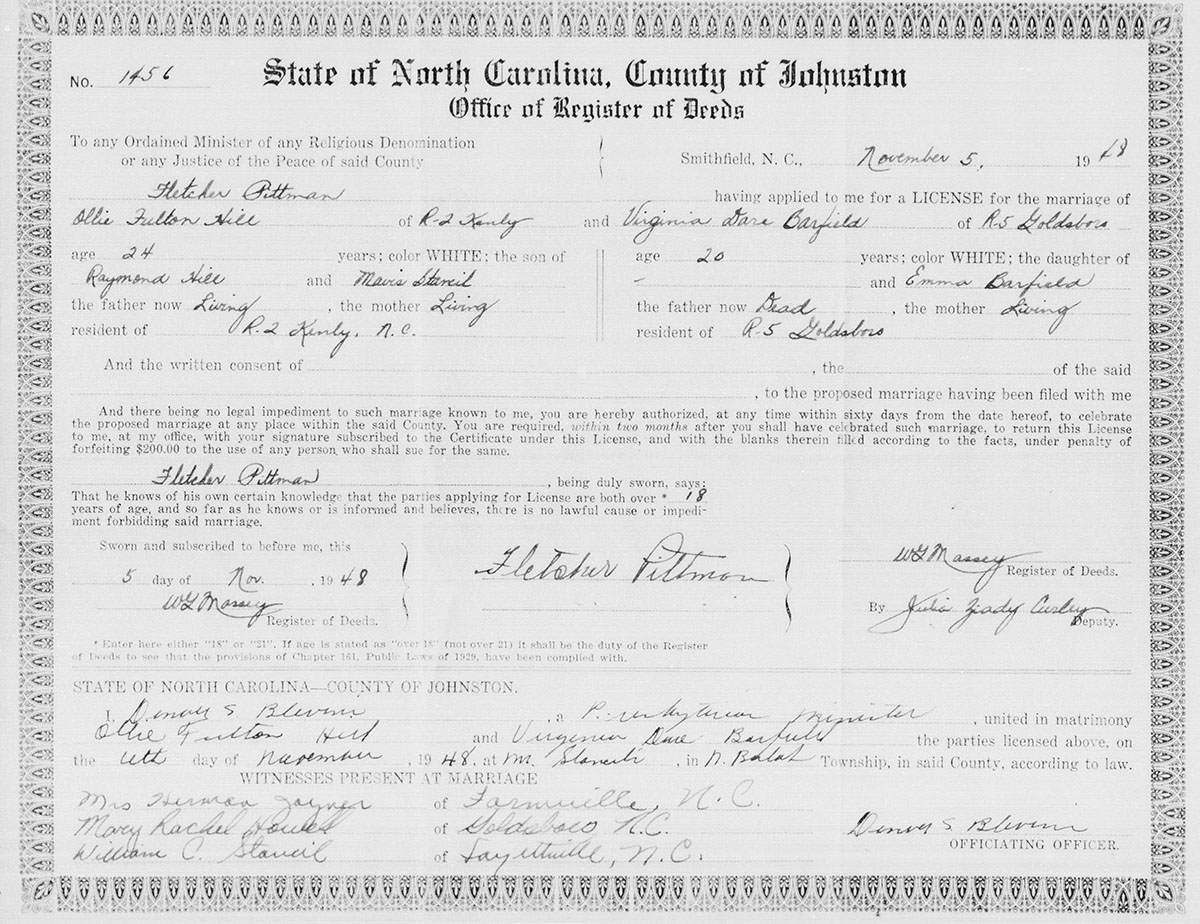 No. 1456
State of North Carolina, County of Johnston
Office of Register of Deeds
To any Ordained Minister of any Religious Denomination
or any Justice of the Peace of said County
Smithfield, N. C., November 5, 1948
Fletcher Pittman having applied to me for a LICENSE for the marriage of
Ollie Fulton Hill of R-2 Kenly and Virginia Dare Barfield of R-5 Goldsboro
age 24 years; color WHITE; the son of
Raymond Hill and Mavis Stancil
the father now Living, the mother Living
resident of R-2 Kenly, N.C.
age 20 years; color WHITE; the daughter of
- and Emma Barfield
the father now Dead, the mother Living
resident of R-5 Goldsboro
And the written consent of , the of the said
, to the proposed marriage having been filed with me
And there being no legal impediment to such marriage known to me, you are hereby authorized, at any time within sixty days from the date hereof, to celebrate
the proposed marriage at any place within the said County. You are required, within two months after you shall have celebrated such marriage, to return this License
to me, at my office, with your signature subscribed to the Certificate under this License, and with the blanks therein filled according to the facts, under penalty of
forfeiting $200.00 to the use of any person who shall sue for the same.
Fletcher Pittman, being duly sworn, says:
That he knows of his own certain knowledge that the parties applying for License are both over * 18
years of age, and so far as he knows or is informed and believes, there is no lawful cause or impedi-
ment forbidding said marriage.
Sworn and subscribed to before me, this
5 day of Nov., 1948
WG Massey
Register of Deeds.
Fletcher Pittman
WG Massey
Register of Deeds.
By Julia Curley
Deputy.
* Enter here either "18" or "21". If age is stated as "over 18" (not over 21) it shall be the duty of the Register
of Deeds to see that the provisions of Chapter 161, Public Laws of 1929, have been complied with.
STATE OF NORTH CAROLINA—COUNTY OF JOHNSTON.
I, Denver S Blevins, a Presbyterian Minister, united in matrimony
Ollie Fulton Hill and Virginia Dare Barfield the parties licensed above, on
the day of November, 1948, at Stancil, in Township, in said County, according to law.
WITNESSES PRESENT AT MARRIAGE
Mrs Herman Joyner of Farmville, N.C.
Mary Rachel Howell of Goldsboro N.C.
William C. Stancil of Fayettville, N.C.
Denver S Blevins
OFFICIATING OFFICER.